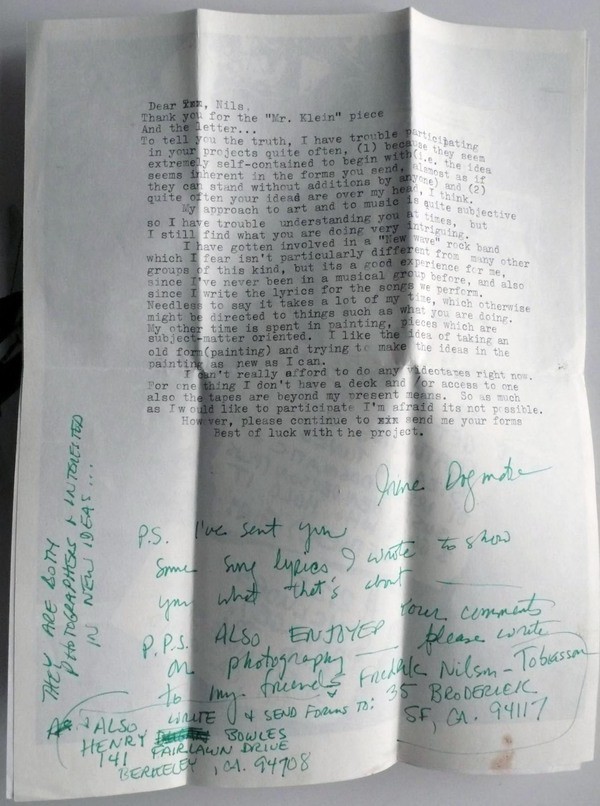 Dear xxx, Nils,
Thank you for the "Mr. Klein" piece
And the letter...
To tell you the truth, I have trouble participating
in your projects quite often, (1) because they seem
extremely self-contained to begin with(i.e. the idea
seems inherent in the forms you send, almost as if
they can stand without additions by anyone) and (2)
quite often your ideas are over my head, I think.
My approach to art and to music is quite subjective
so I have trouble understanding you at times, but
I still find what you are doing very intriguing.
I have gotten involved in a "New wave" rock band
which I fear isn't particularly different from many other
groups of this kind, but its a good experience for me,
since I've never been in a musical group before, and also
since I write the lyrics for the songs we perform.
Needless to say it takes a lot of my time, which otherwise
might be directed to things such as what you are doing.
My other time is spent in painting, pieces which are
subject-matter oriented. I like the idea of taking an
old form(painting) and trying to make the ideas in the
painting as new as I can.
I can't really afford to do any videotapes right now.
For one thing I don't have a deck and /or access to one
also the tapes are beyond my present means. So as much
as I would like to participate I'm afraid its not possible.
However, please continue to xix send me your forms
Best of luck with the project.
Irene Dogmatic
P.S. I've sent you
some song lyrics I wrote to show
you what that's about
P.P.S. ALSO ENJOYED your comments
on photography — please write
to my friends Fredrik Nilsen - Tobiasson
35 BRODERICK
SF, CA. 94117
+ ALSO WRITE + SEND FORMS TO:
HENRY BOWLES
141 FAIRLAWN DRIVE
BERKELEY, CA. 94708
THEY ARE BOTH
PHOTOGRAPHERS + INTERESTED
IN NEW IDEAS...